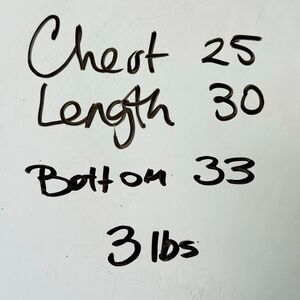 Chest 25
Length 30
Bottom 33
3 lbs